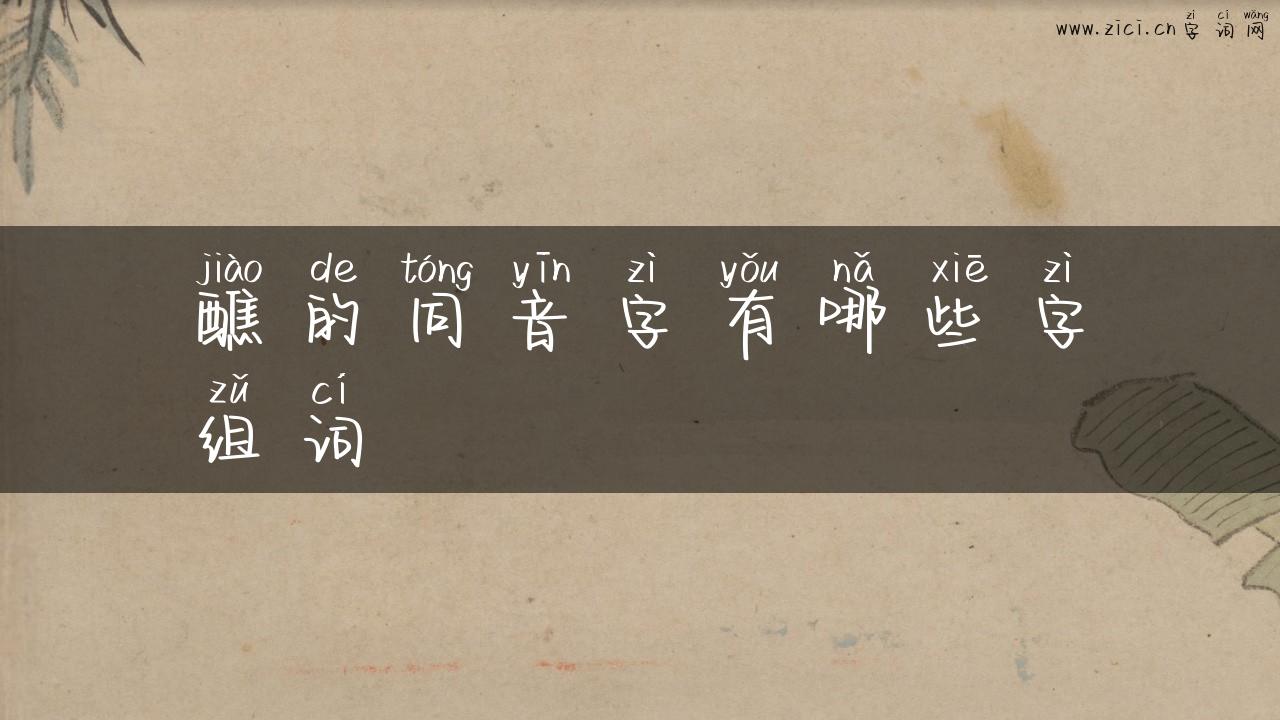 zì cí wǎng
www.zici.cn 字 词 网
jiào de tóng yīn zì yǒu nǎ xiē zì
醮 的 同 音 字 有 哪 些 字
zǔ cí
组 词